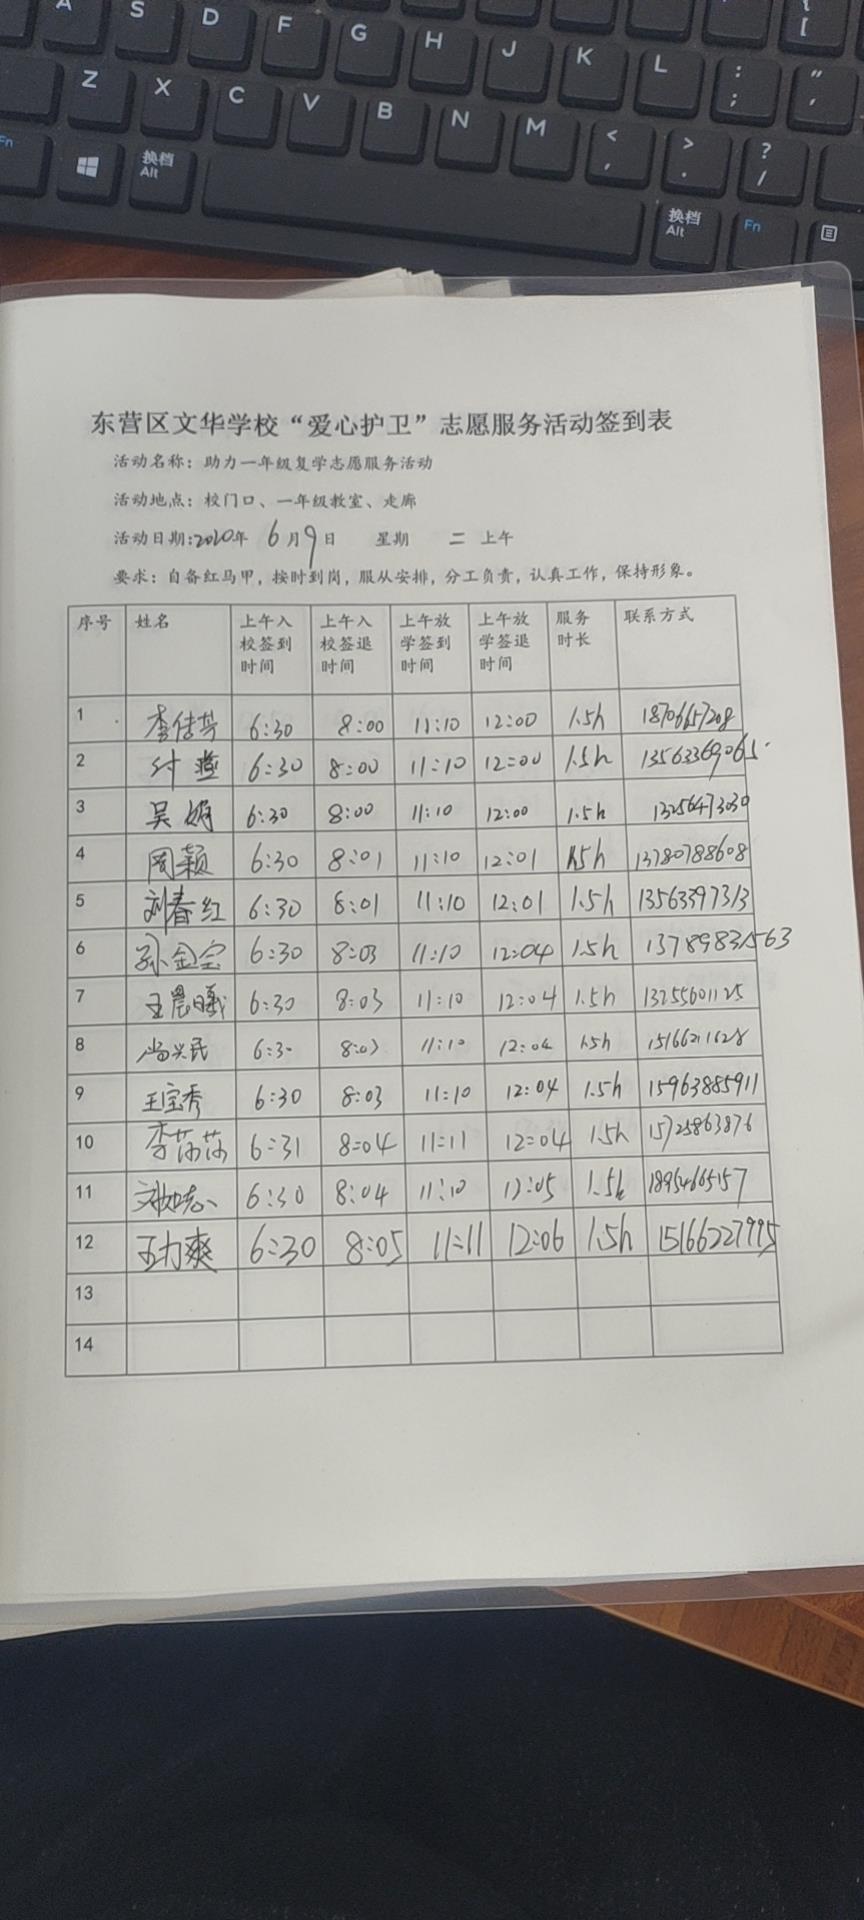 A S D F G H J K L : ; " ' { [
Z X C V B N M < , > . ? /
Fn 换档 Alt 换档 Alt Fn
东营区文华学校“爱心护卫”志愿服务活动签到表
活动名称：助力一年级复学志愿服务活动
活动地点：校门口、一年级教室、走廊
活动日期：2020年 6月9日 星期 二 上午
要求：自备红马甲，按时到岗，服从安排，分工负责，认真工作，保持形象。
序号 姓名 上午入校签到时间 上午入校签退时间 上午放学签到时间 上午放学签退时间 服务时长 联系方式
1 6:30 8:00 11:10 12:00 1.5h 18706657208
2 付燕 6:30 8:00 11:10 12:00 1.5h 13563369065
3 吴娟 6:30 8:00 11:10 12:00 1.5h 13256473030
4 周颖 6:30 8:01 11:10 12:01 1.5h 13780788608
5 刘春红 6:30 8:01 11:10 12:01 1.5h 13563397313
6 孙金宝 6:30 8:03 11:10 12:04 1.5h
7 王晨曦 6:30 8:03 11:10 12:04 1.5h 13255601125
8 尚兴民 6:30 8:03 11:10 12:04 1.5h 15166211628
9 王宝秀 6:30 8:03 11:10 12:04 1.5h 15963885911
10 李莎莎 6:31 8:04 11:11 12:04 1.5h 15725863876
11 6:30 8:04 11:10 12:05 1.5h 18954665157
12 王力爽 6:30 8:05 11:11 12:06 1.5h 15166227995
13
14